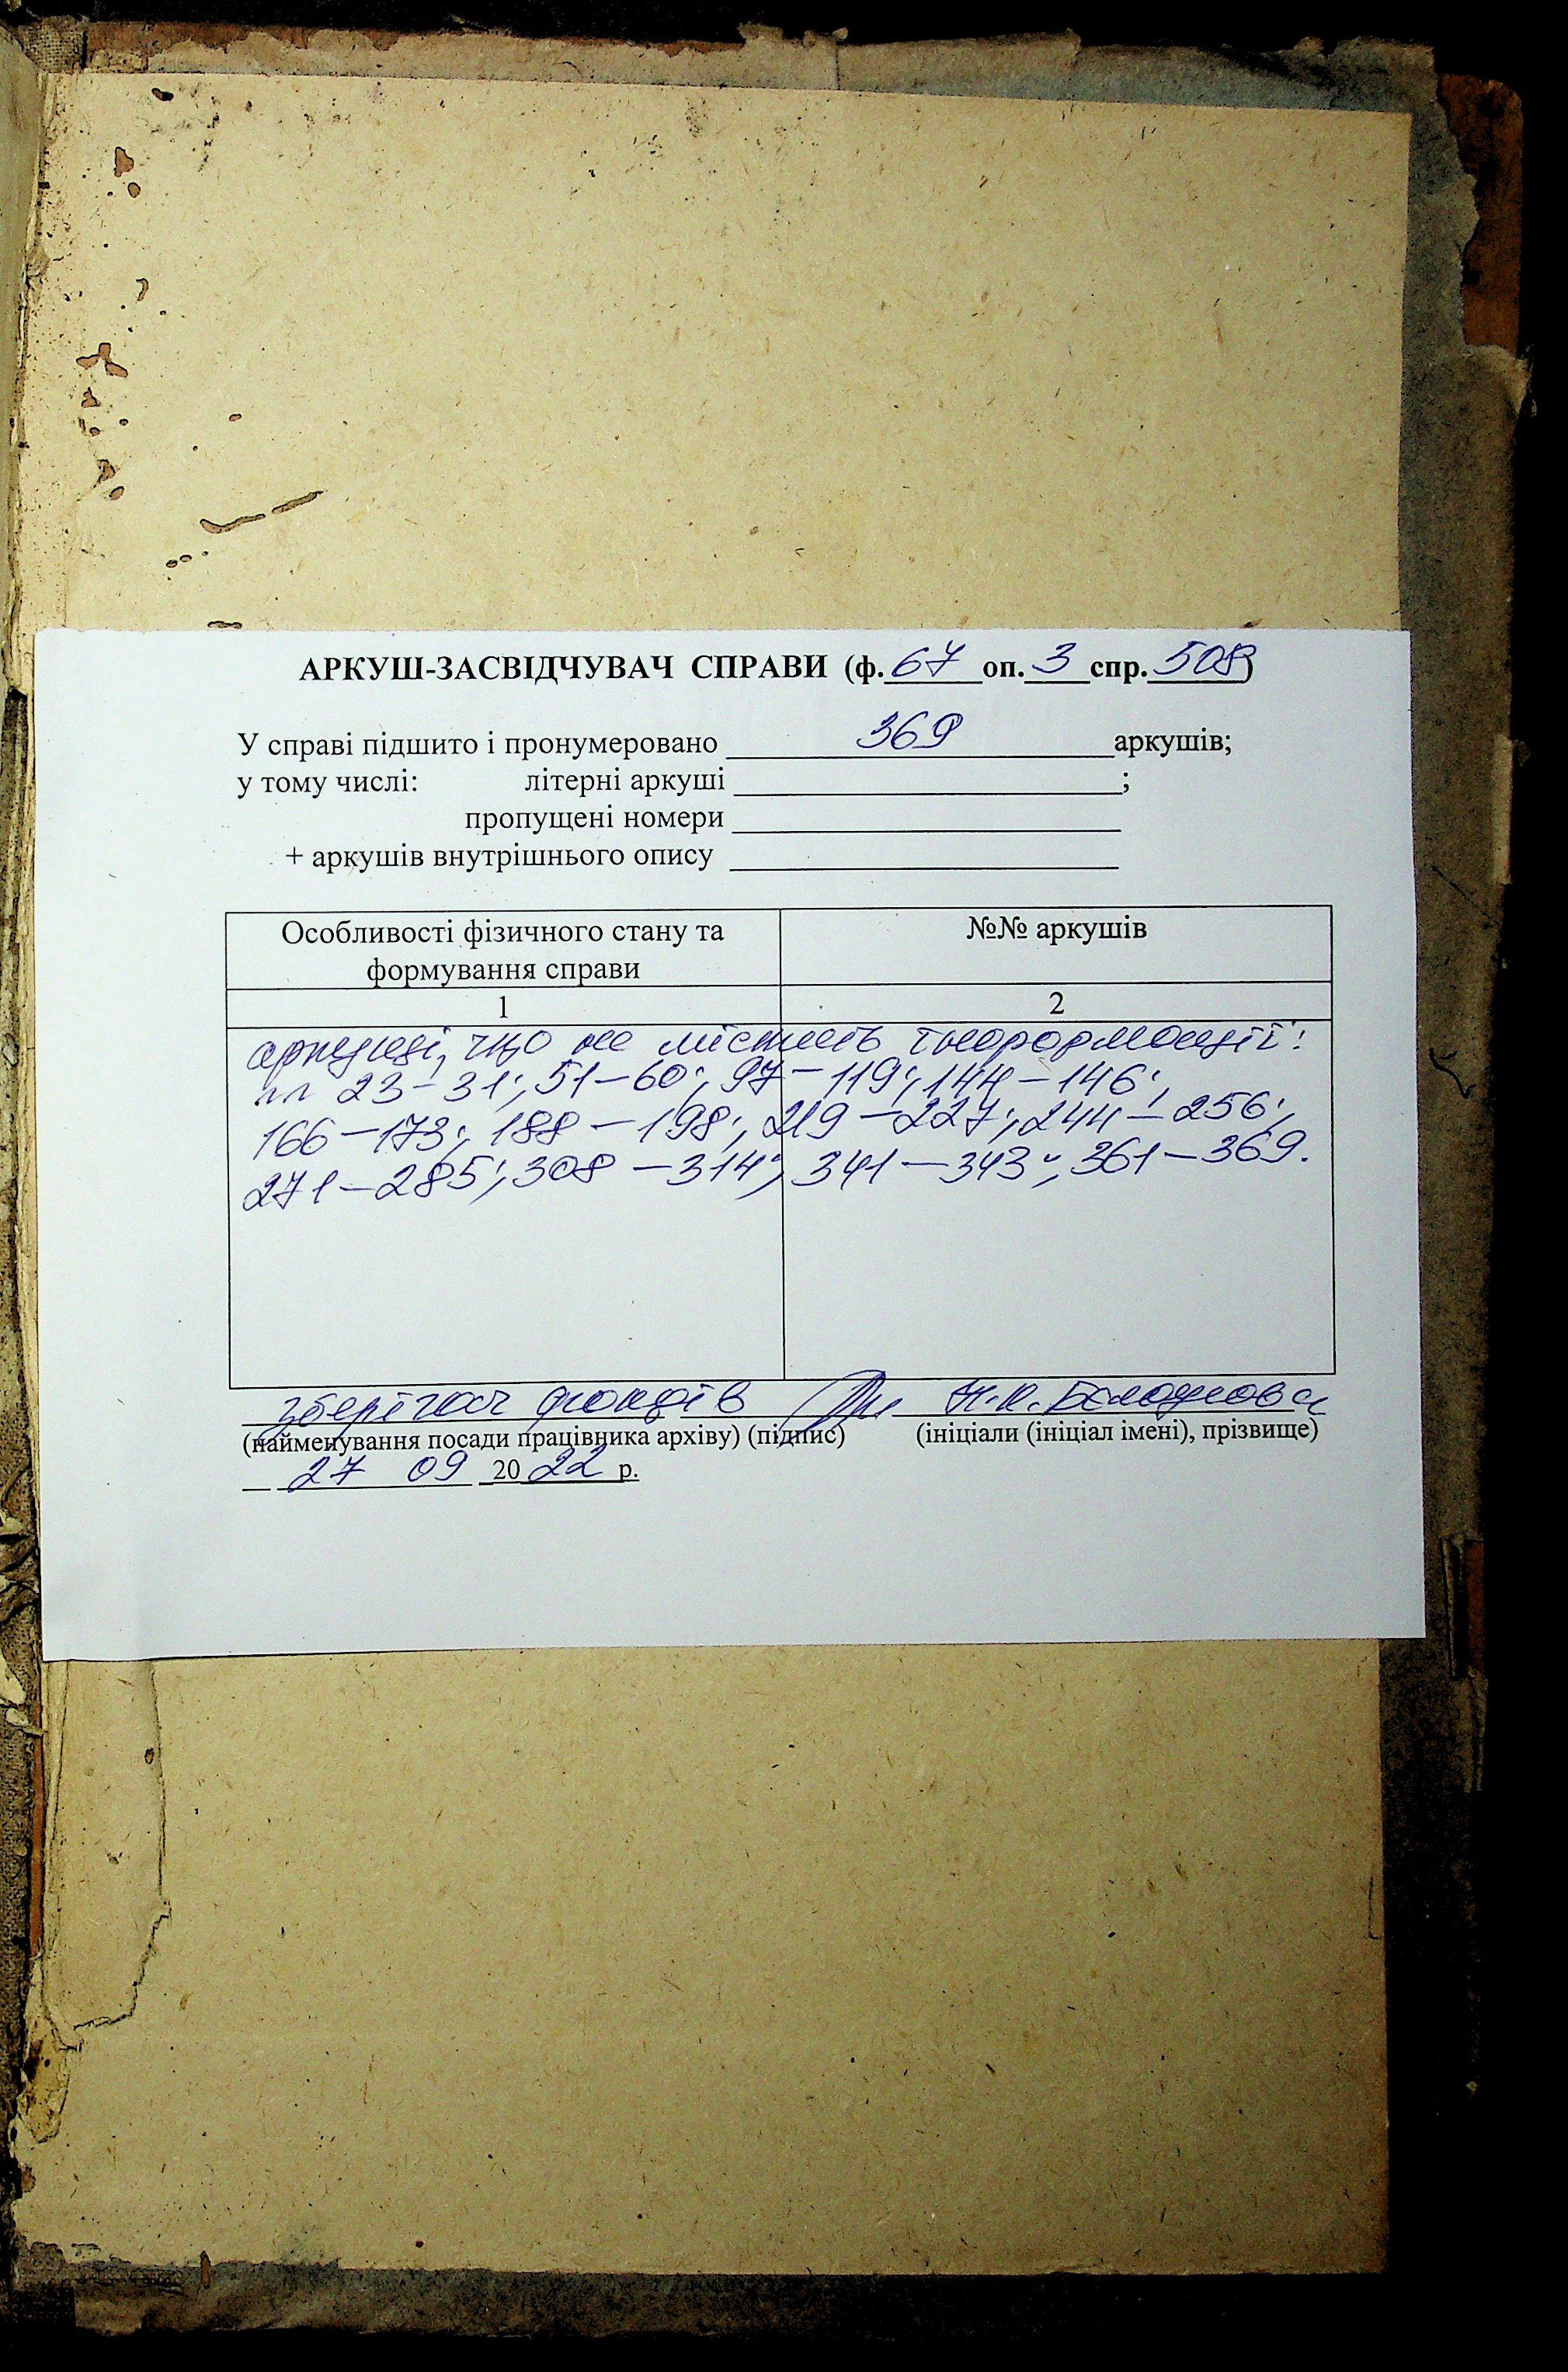 АРКУШ-ЗАСВІДЧУВАЧ СПРАВИ (ф. 67 оп. 3 спр. 508)
У справі підшито і пронумеровано 369 аркушів;
у тому числі: літерні аркуші ;
пропущені номери
+ аркушів внутрішнього опису
Особливості фізичного стану та формування справи
№№ аркушів
1 2
аркуші, що не містять інформації:
23–31; 51–60; 97–119; 144–146;
166–173; 188–198; 219–227; 244–256;
271–285; 308–314; 341–343; 361–369.
зберігач фондів
(найменування посади працівника архіву) (підпис) (ініціали (ініціал імені), прізвище)
27 09 2022 р.